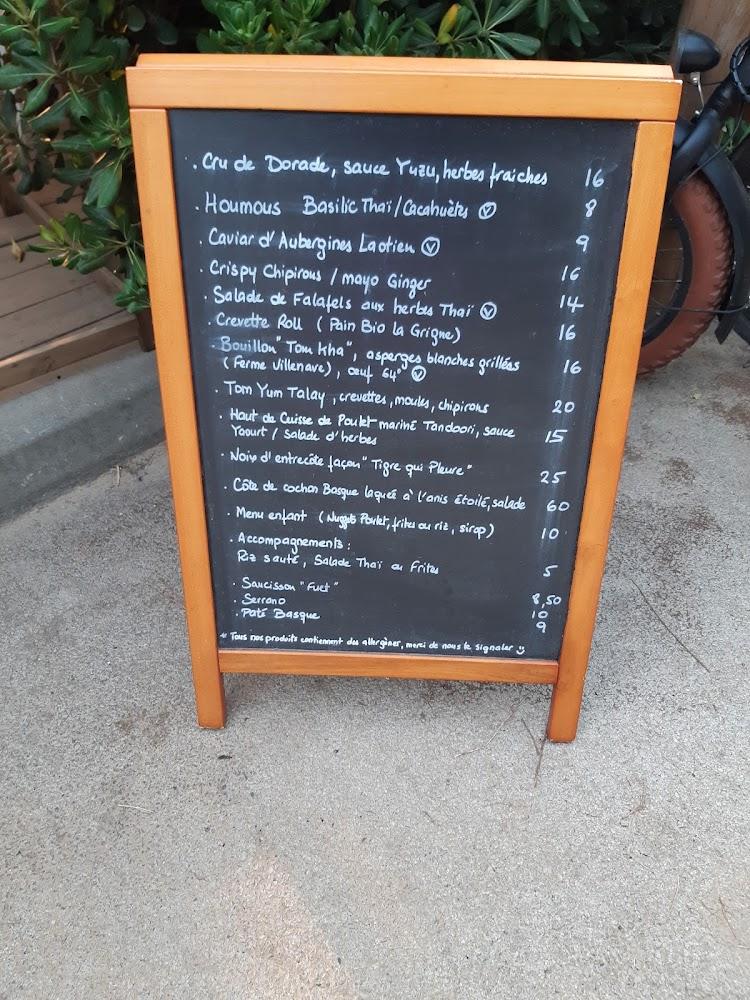 . Cru de Dorade, sauce Yuzu, herbes fraiches 16
. Houmous Basilic Thaï / Cacahuètes Ⓥ 8
. Caviar d'Aubergines Laotien Ⓥ 9
. Crispy Chipirons / mayo Ginger 16
. Salade de Falafels aux herbes Thaï Ⓥ 14
. Crevette Roll ( Pain Bio la Grigne) 16
. Bouillon "Tom Kha", asperges blanches grillées
( Ferme Villenave), œuf 64° Ⓥ 16
. Tom Yum Talay, crevettes, moules, chipirons 20
. Haut de Cuisse de Poulet mariné Tandoori, sauce
Yaourt / Salade d'herbes 15
. Noix d'entrecôte façon "Tigre qui Pleure" 25
. Côte de cochon Basque laquée à l'anis étoilé, salade 60
. Menu enfant ( Nuggets Poulet, frites ou riz, sirop) 10
. Accompagnements :
Riz sauté, Salade Thaï ou Frites 5
. Saucisson "Fuet" 8,50
. Serrano 10
. Paté Basque 9
* Tous nos produits contiennent des allergènes, merci de nous le signaler :)